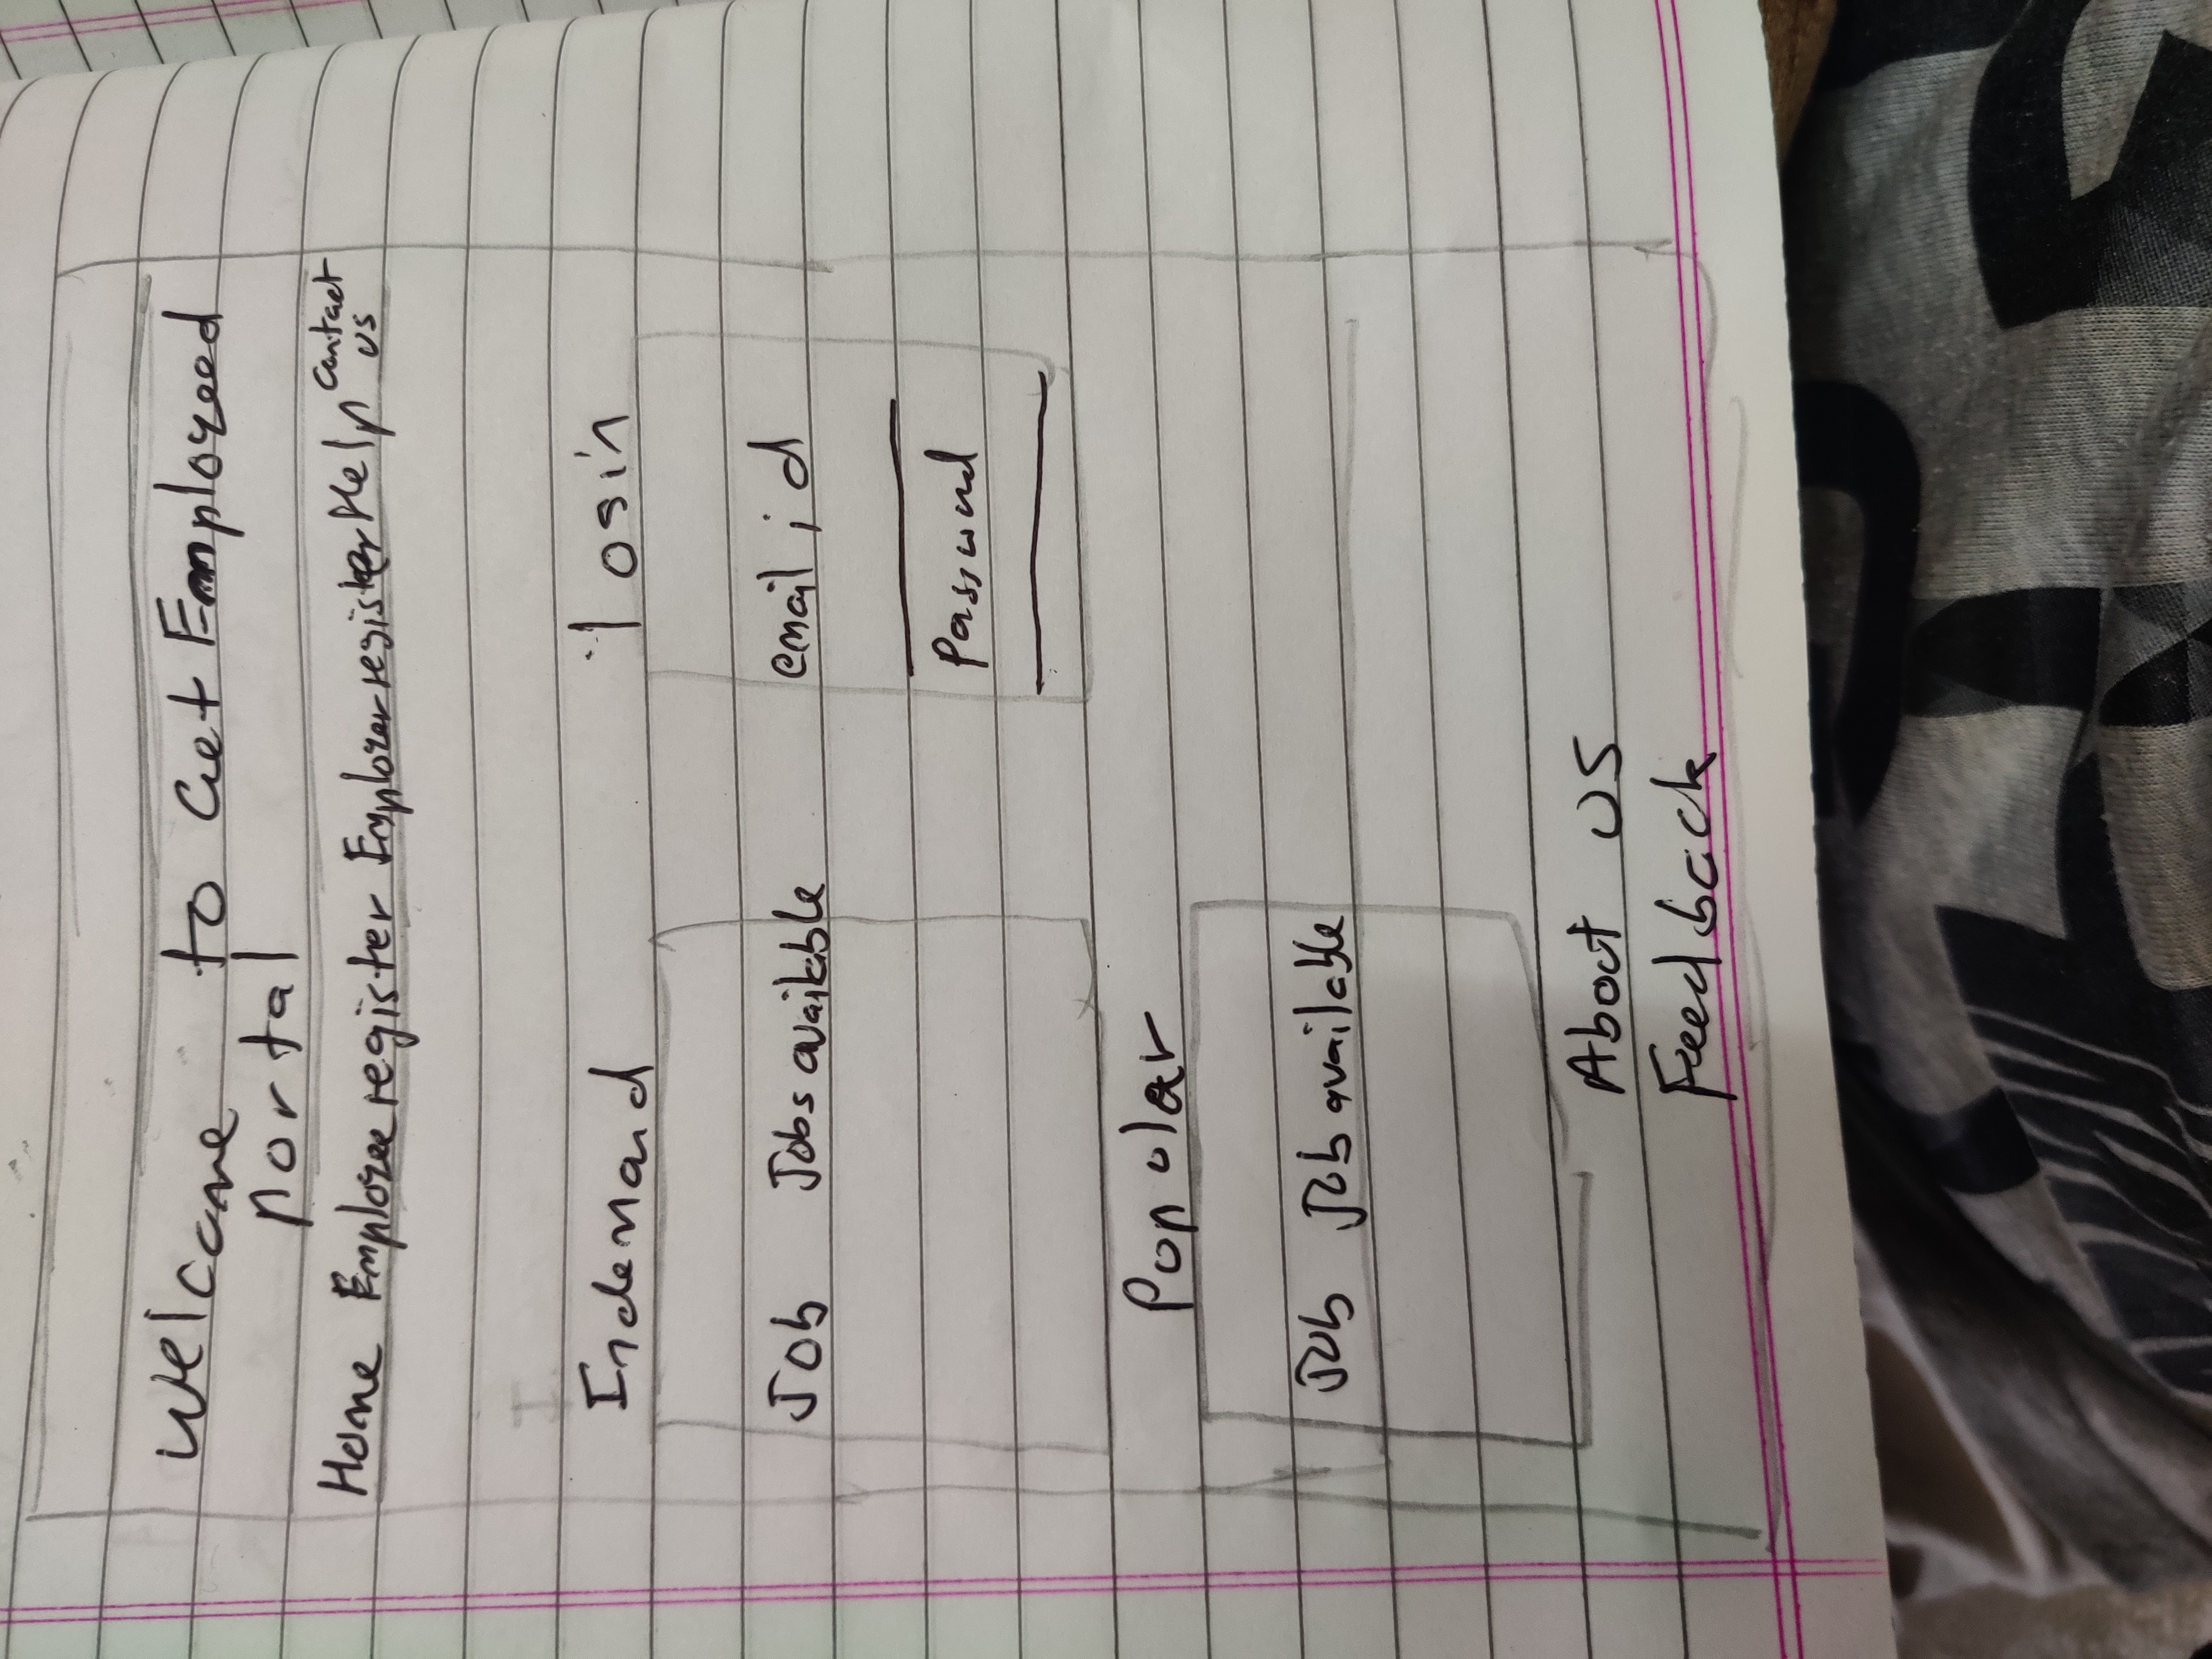 Welcome to Get Employeed
portal
Home Employee register Employer register Help Contact us
Indemand
login
Job Jobs available
email id
Password
Popular
Job Job available
About us
Feedback